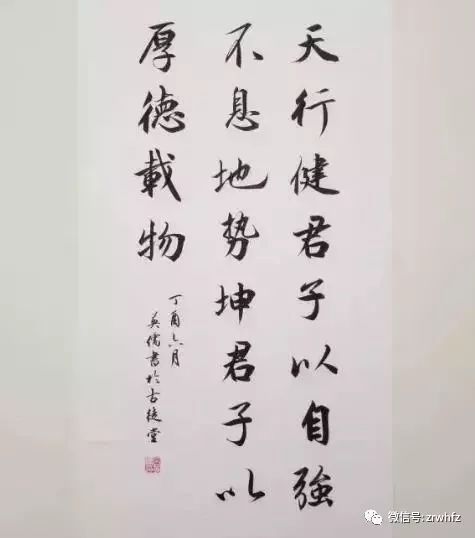 天行健君子以自強
不息地势坤君子以
厚德載物
丁酉六月
英儒書於古徒堂
微信号: zrwhfz